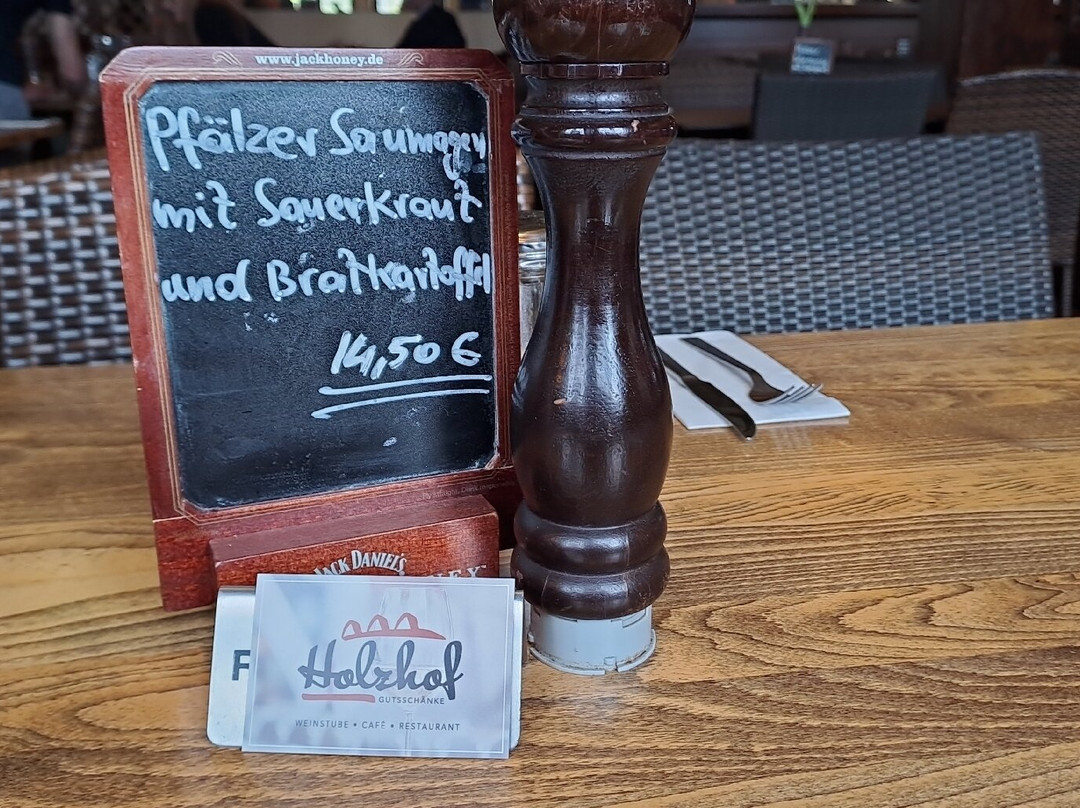 www.jackhoney.de
Pfälzer Saumagen
mit Sauerkraut
und Bratkartoffel
14,50 €
JACK DANIEL'S
F
Holzhof
GUTSSCHÄNKE
WEINSTUBE • CAFÉ • RESTAURANT